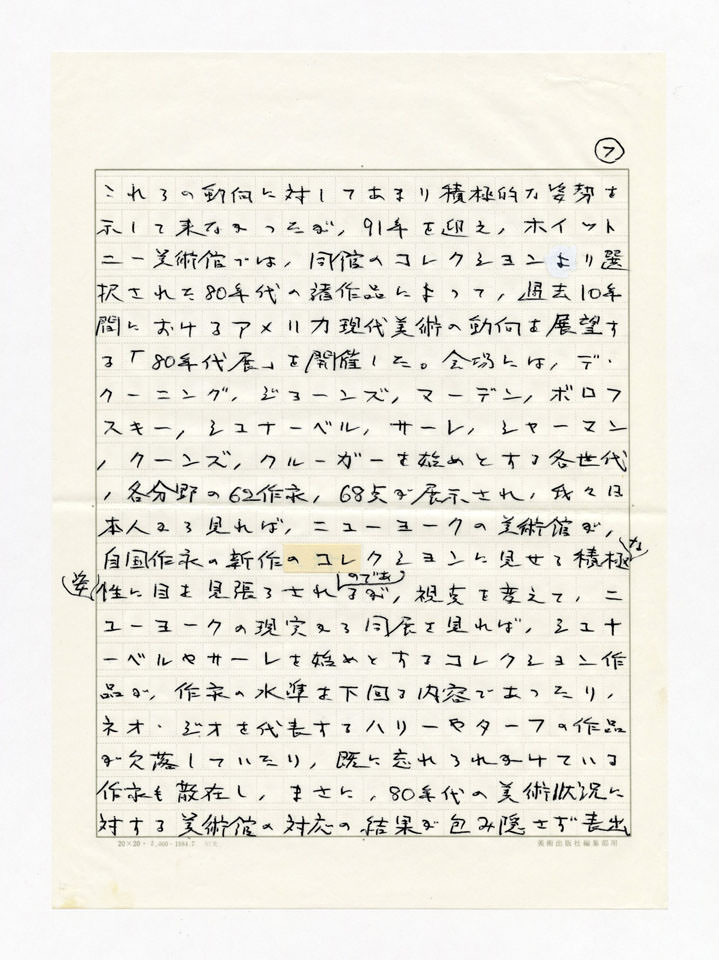 ⑦
これらの動向に対してあまり積極的な姿勢を
示して来なかったが、91年を迎え、ホイット
ニー美術館では、同館のコレクションより選
択された80年代の諸作品によって、過去10年
間におけるアメリカ現代美術の動向を展望す
る「80年代展」を開催した。会場には、デ・
クーニング、ジョーンズ、マーデン、ボロフ
スキー、シュナーベル、サーレ、シャーマン
、クーンズ、クルーガーを始めとする各世代
、各分野の62作家、68点が展示され、我々日
本人から見れば、ニューヨークの美術館が、
自国作家の新作のコレクションに見せる積極
な
姿
のであ
性に目を見張らされるが、視点を変えて、ニ
ューヨークの現実から同展を見れば、シュナ
ーベルやサーレを始めとするコレクション作
品が、作家の水準を下回る内容であったり、
ネオ・ジオを代表するハリーやターフの作品
が欠落していたり、既に忘れられかけている
作家も散在し、まさに、80年代の美術状況に
対する美術館の対応の結果が包み隠さず表出
20×20
1984.7
美術出版社編集部用